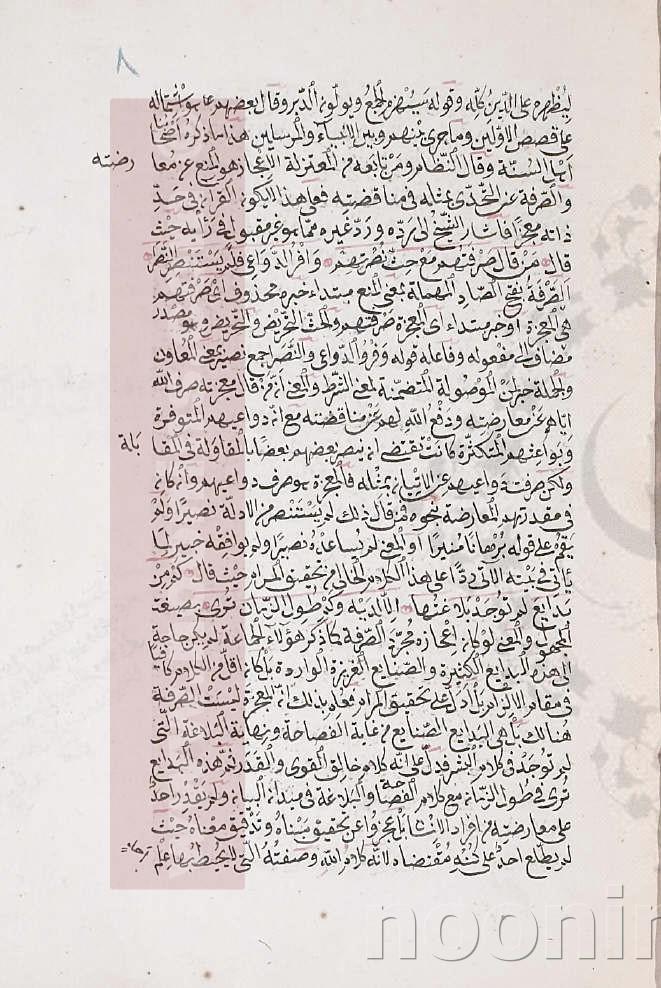 ٨
ليظهره على الدين كله وقوله سيهزم الجمع ويولون الدبر وقال بعضهم هو اشتماله
على قصص الاولين وما جرى بينهم وبين الانبياء والمرسلين هذا ما ذكره اصحابنا
اهل السنة وقال النظام ومن تابعه من المعتزلة الاعجاز هو المنع عن معا
رضته
والصرفة عن التحدي بمثله في مناقضته فعلى هذا لا يكون القرآن في حد
ذاته معجزا فاشار الشيخ الى رده ورد غيره مما هو غير مقبول في رأيه حيث
قال من قال صرفتهم مع حث نصرتهم وافر الدواعي فلم يستنصر النصر
الصرفة بفتح الصاد المهملة بمعنى المنع مبتداء خبره محذوف اي صرفتهم
هي المعجزة او خبر مبتداء اي المعجزة صرفتهم والحث التحريض والتحريض وهو مصدر
مضاف الى مفعوله وفاعله قوله وفر الدواعي والنصر جمع نصير بمعنى المعاون
والجملة خبر لمن الموصولة المتضمنة لمعنى الشرط والمعنى ان من قال معجزته صرف الله
اياهم عن معارضته ودفع الله لهم عن مناقضته مع ان دواعيهم المتوفرة
وبواعثهم المتكثرة كانت تقتضي ان ينصر بعضهم بعضا بالمقاولة في المقا
بلة
ولكن صرفت دواعيهم عن الاتيان بمثله فالمعجزة هو صرف دواعيهم وان كان
في مقدرتهم المعارضة بنحوه فمن قال ذلك لم يستنصر من الادلة نصيرا ولم
يقم على قوله برهانا منيرا او المعنى لم يساعده نصير ولم يوافقه خبير لما
يأتي في بيته الآتي ردا على هذا الكلام الخالي من تحقيق المرام حيث قال كم من
بدايع لم توجد بلاغتها الا لديه وكم طول الزمان ترى بصيغة
المجهول والمعنى لو كان اعجازه مجرد الصرفة كما ذكر هؤلاء الجماعة لم يكن حاجة
الى هذه البدايع الكثيرة والصنايع الغزيرة الواردة بل كان اقل من الكلام كافيا
في مقام الالزام بل ادل على تحقيق المرام فعلم بذلك ان المعجزة ليست الصرفة
هنالك بل هي البدايع الصنايع من غاية الفصاحة ونهاية البلاغة التي
لم توجد في كلام البشر فدل على انه كلام خالق القوى والقدر ثم هذه البدايع
ترى في طول الزمان مع كلام الفصحاء والبلاغة في ميدان البيان ولم يقدر احد
على معارضته من افراد الانسان بل عجزوا عن تحقيق مبناه وتدقيق معناه حيث
لم يطلع احد على كنه مقتضاه لانه كلام الله وصفته التي لا يحيط بها علم
noonir